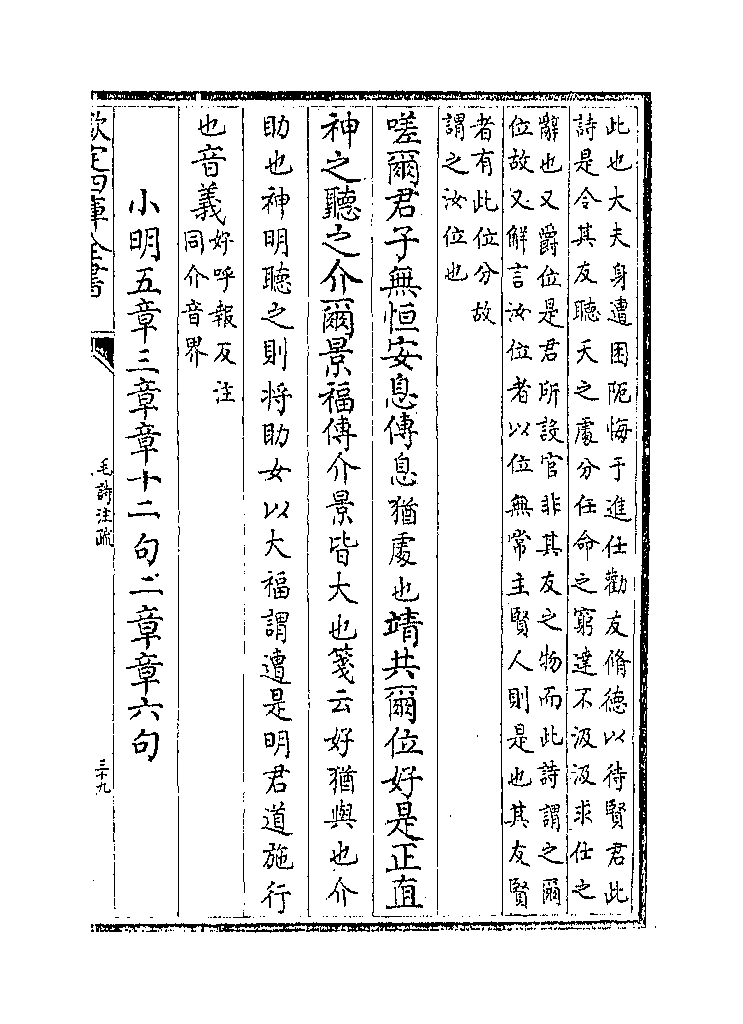 此也大夫身遭困阨悔于進仕勸友脩德以待賢君此
詩是令其友聽天之處分任命之窮達不汲汲求仕之
辭也又爵位是君所設官非其友之物而此詩謂之爾
位故又解言汝位者以位無常主賢人則是也其友賢
者有此位分故
謂之汝位也
嗟爾君子無恒安息傳息猶處也靖共爾位好是正直
神之聽之介爾景福傳介景皆大也箋云好猶與也介
助也神明聽之則將助女以大福謂遭是明君道施行
也音義好呼報反注
同介音界
小明五章三章章十二句二章章六句
欽定四庫全書
毛詩注疏
三十九